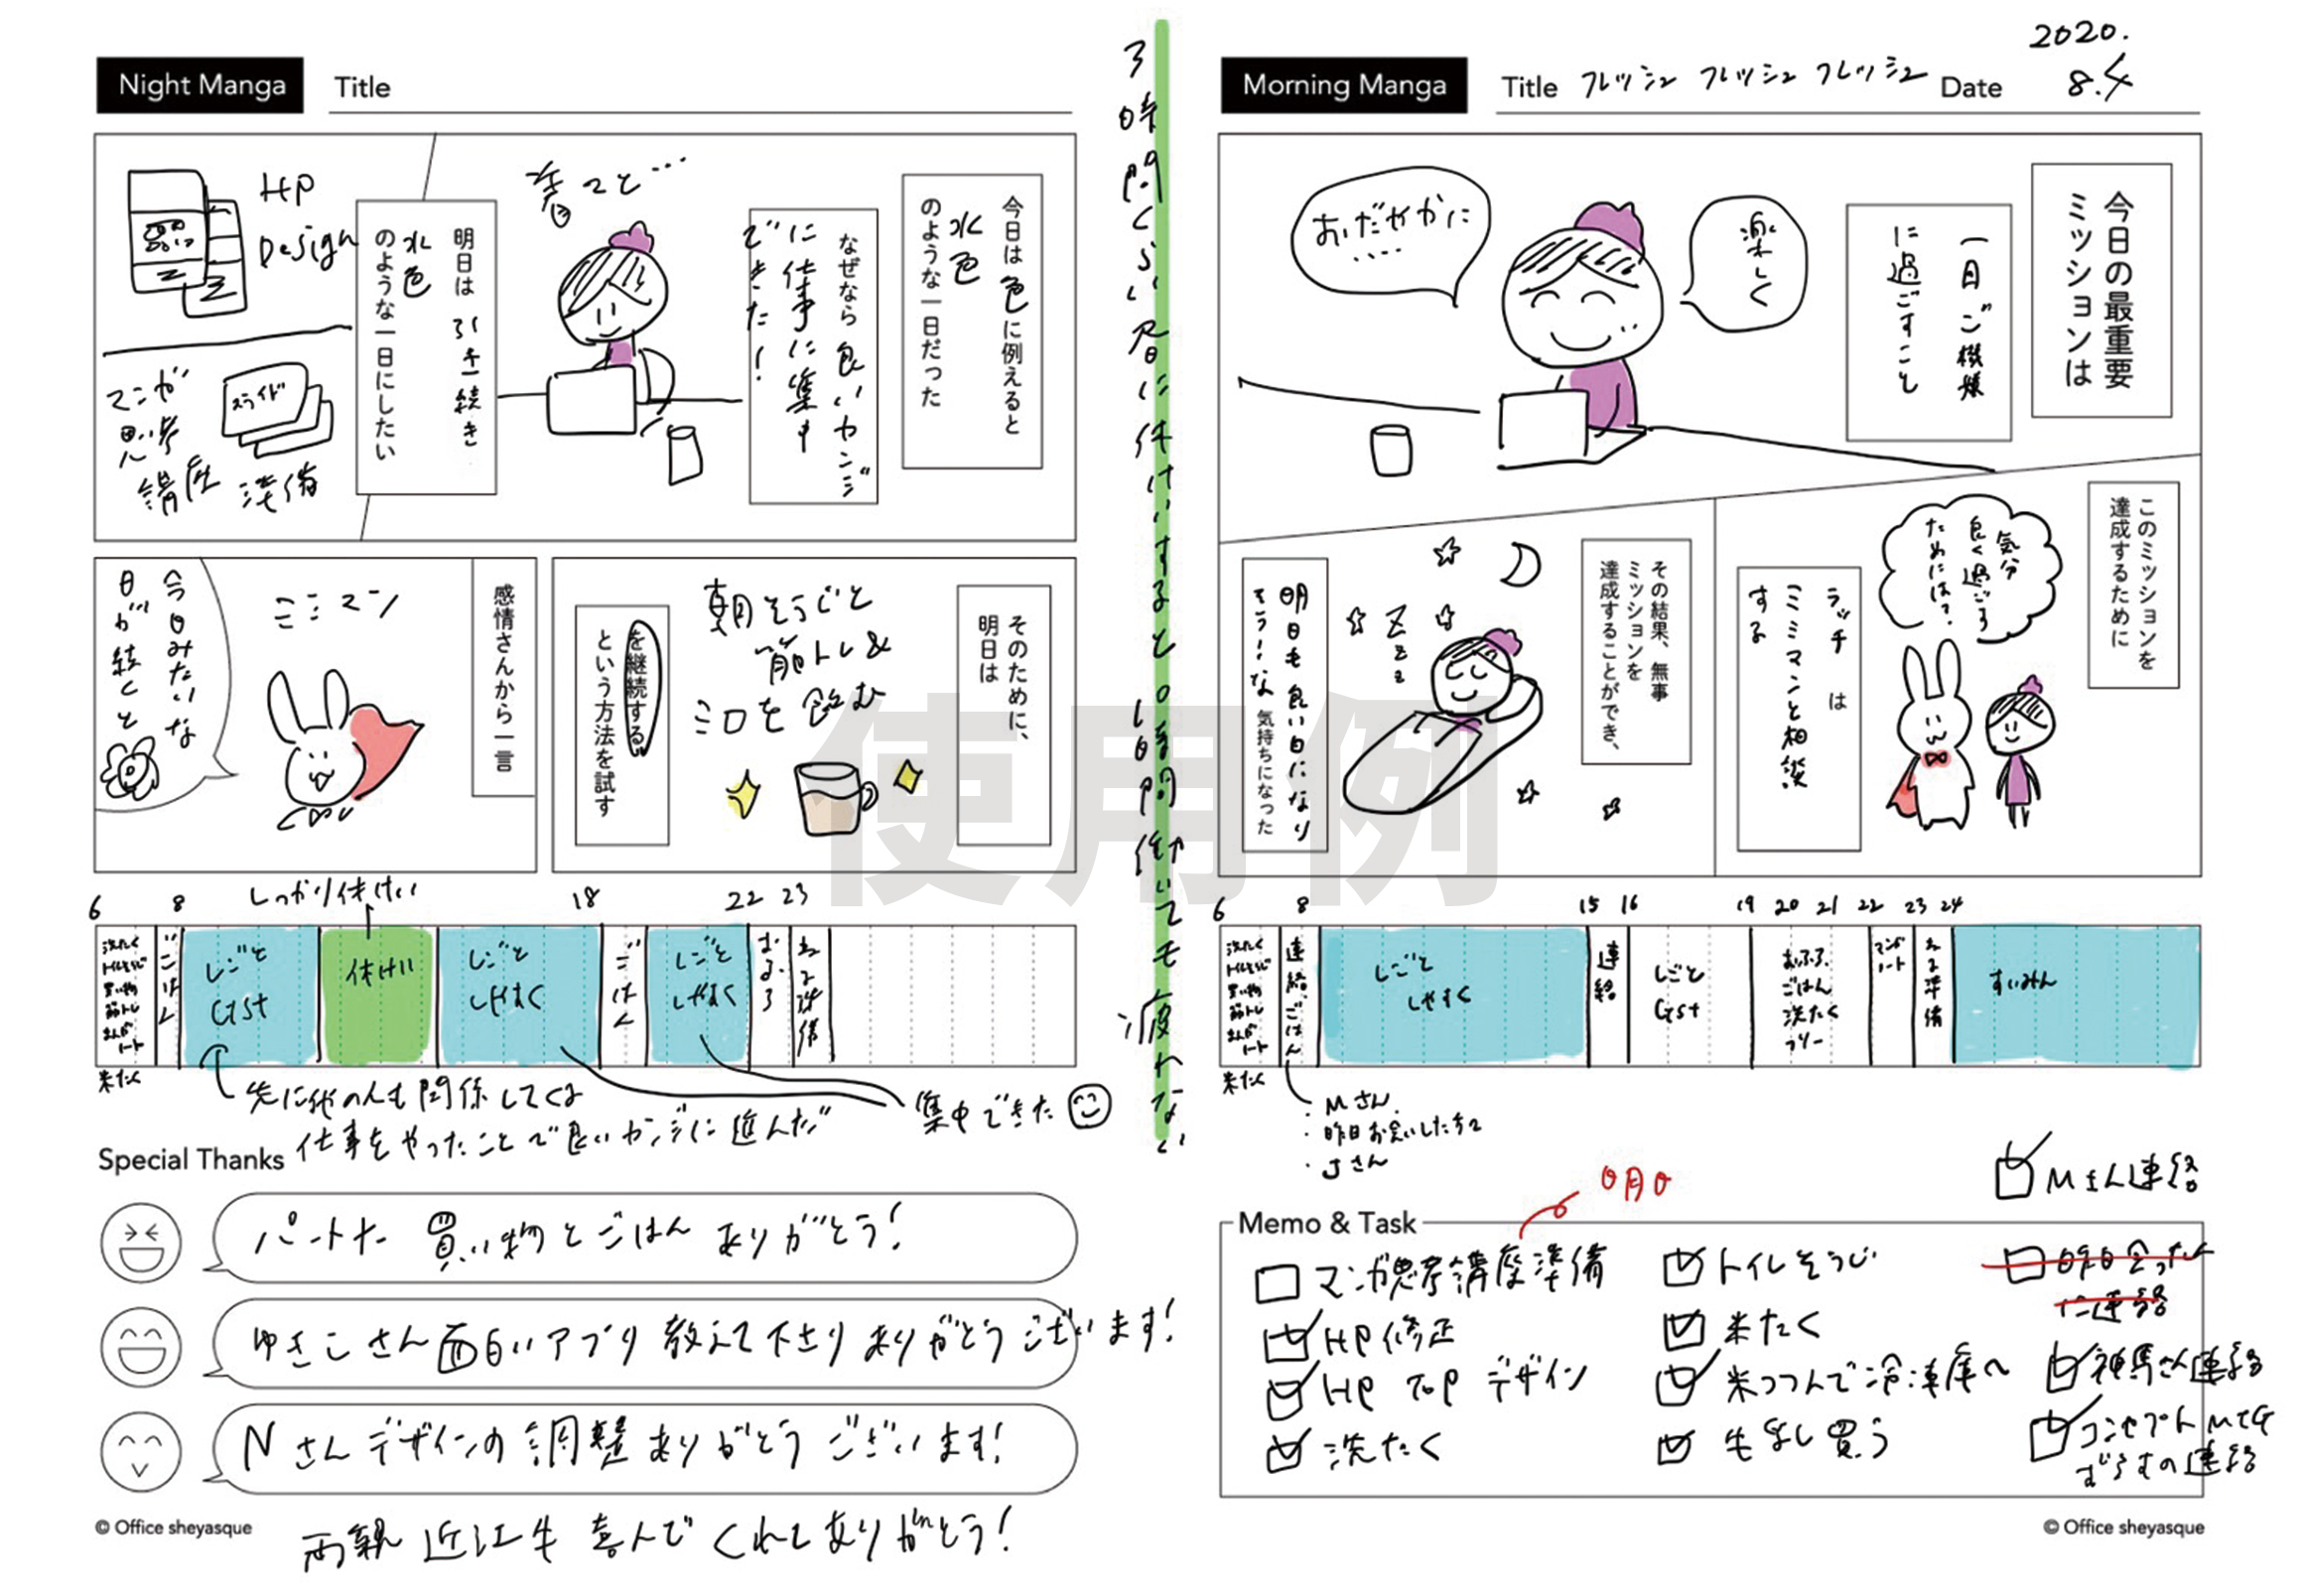 Night Manga
Title
今日は色に例えると
水色
のような一日だった
なぜなら良いカンジ
に仕事に集中
できた！
HP
Design
明日は引き続き
水色
のような一日にしたい
マンガ
思考
講座
準備
スライド
そのために、
明日は
朝そうじと
筋トレ&
ミロを飲む
を継続する
という方法を試す
感情さんから一言
ミミマン
今日みたいな
日が続くと
6 8 18 22 23
しっかり休けい
洗たく
トイレそうじ
買い物
筋トレ
まんが
ノート
米たく
ごはん
しごと
Gst
休けい
しごと
しゃすく
ごはん
しごと
しゃすく
おふろ
ねる準備
先に他の人も関係してくる
仕事をやったことで良いカンジに進んだ
集中できた
Special Thanks
パートナー 買い物とごはん ありがとう！
ゆきこさん面白いアプリ教えて下さりありがとうございます！
Nさんデザインの調整ありがとうございます！
両親 近江牛 喜んでくれてありがとう！
© Office sheyasque
3時間くらい昼に休けいすると10時間働いても疲れない
Morning Manga
Title フレッシュ フレッシュ フレッシュ
Date 2020.
8.4
今日の最重要
ミッションは
一日ご機嫌
に過ごすこと
楽しく
おだやかに
....
このミッションを
達成するために
気分
良く過ごす
ためには？
ラッチは
ミミマンと相談
する
その結果、無事
ミッションを
達成することができ、
明日も良い日になり
そう！な気持ちになった
Zzz
6 8 15 16 19 20 21 22 23 24
洗たく
トイレそうじ
買い物
筋トレ
まんが
ノート
米たく
連絡、ごはん
しごと
しゃすく
連絡
しごと
Gst
おふろ、
ごはん
洗たく
フリー
マンガ
ノート
ねる準備
すいみん
・Mさん
・昨日お会いした方々
・Jさん
Mさん連絡
Memo & Task
〇月〇
マンガ思考講座準備
HP修正
HP TOP デザイン
洗たく
トイレそうじ
米たく
米つつんで冷凍庫へ
牛よし買う
昨日会った人
に連絡
神馬さん連絡
コンセプトMTG
連絡
© Office sheyasque
使用例